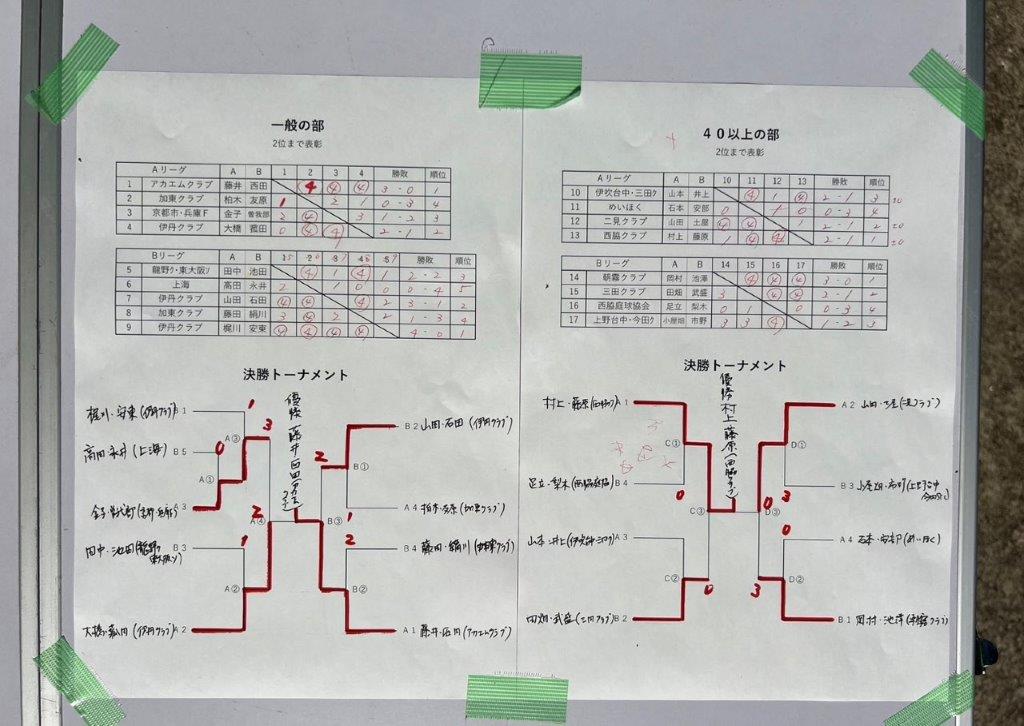 一般の部
2位まで表彰
Aリーグ A B 1 2 3 4 勝敗 順位
1 アカエムクラブ 藤井 西田 4 4 4 3-0 1
2 加東クラブ 柏木 友原 1 2 1 0-3 4
3 京都市・兵庫F 金子 曽我部 2 4 3 1-2 3
4 伊丹クラブ 大橋 菰田 0 4 4 2-1 2
Bリーグ A B 勝敗 順位
5 龍野ク・東大阪ソ 田中 池田 4 1 4 1 2-2 3
6 上海 高田 永井 2 1 0 0 0-4 5
7 伊丹クラブ 山田 石田 4 4 4 2 3-1 2
8 加東クラブ 藤田 絹川 3 4 2 2 1-3 4
9 伊丹クラブ 梶川 安東 4 4 4 4 4-0 1
決勝トーナメント
優勝 藤井 西田
梶川・安東(伊丹クラブ) B 1
高田・永井(上海) B 5
3
田中・池田 B 3
大橋・菰田(伊丹クラブ) A 2
A① A② A③ A④
1 0 3 1 2
B 2 山田・石田(伊丹クラブ)
A 4 柏木・友原(加東クラブ)
B 4 藤田・絹川(加東クラブ)
A 1 藤井・西田(アカエムクラブ)
B① B② B③
2 1 2
40以上の部
2位まで表彰
Aリーグ A B 10 11 12 13 勝敗 順位
10 伊吹台中・三田ク 山本 井上 4 1 4 2-1 3 ±0
11 めいほく 石本 安部 0 1 0 0-3 4
12 二見クラブ 山田 土屋 4 4 2-1 2 ±0
13 西脇クラブ 村上 藤原 1 4 4 2-1 1 ±0
Bリーグ A B 14 15 16 17 勝敗 順位
14 朝霧クラブ 岡村 池澤 4 4 4 3-0 1
15 三田クラブ 田畑 武盛 3 4 4 2-1 2
16 西脇庭球協会 足立 梨木 0 1 0 0-3 4
17 上野台中・今田ク 小屋畑 市野 3 3 4 1-2 3
決勝トーナメント
優勝 村上 藤原(西脇クラブ)
村上・藤原(西脇ク) A 1
足立・梨木(西脇庭協) B 4
山本・井上 A 3
田畑・武盛(三田クラブ) B 2
C① C② C③
0 0
A 2 山田・土屋(二見クラブ)
B 3 小屋畑・市野
A 4 石本・安部(めいほく)
B 1 岡村・池澤(朝霧クラブ)
D① D② D③
3 0 0 3